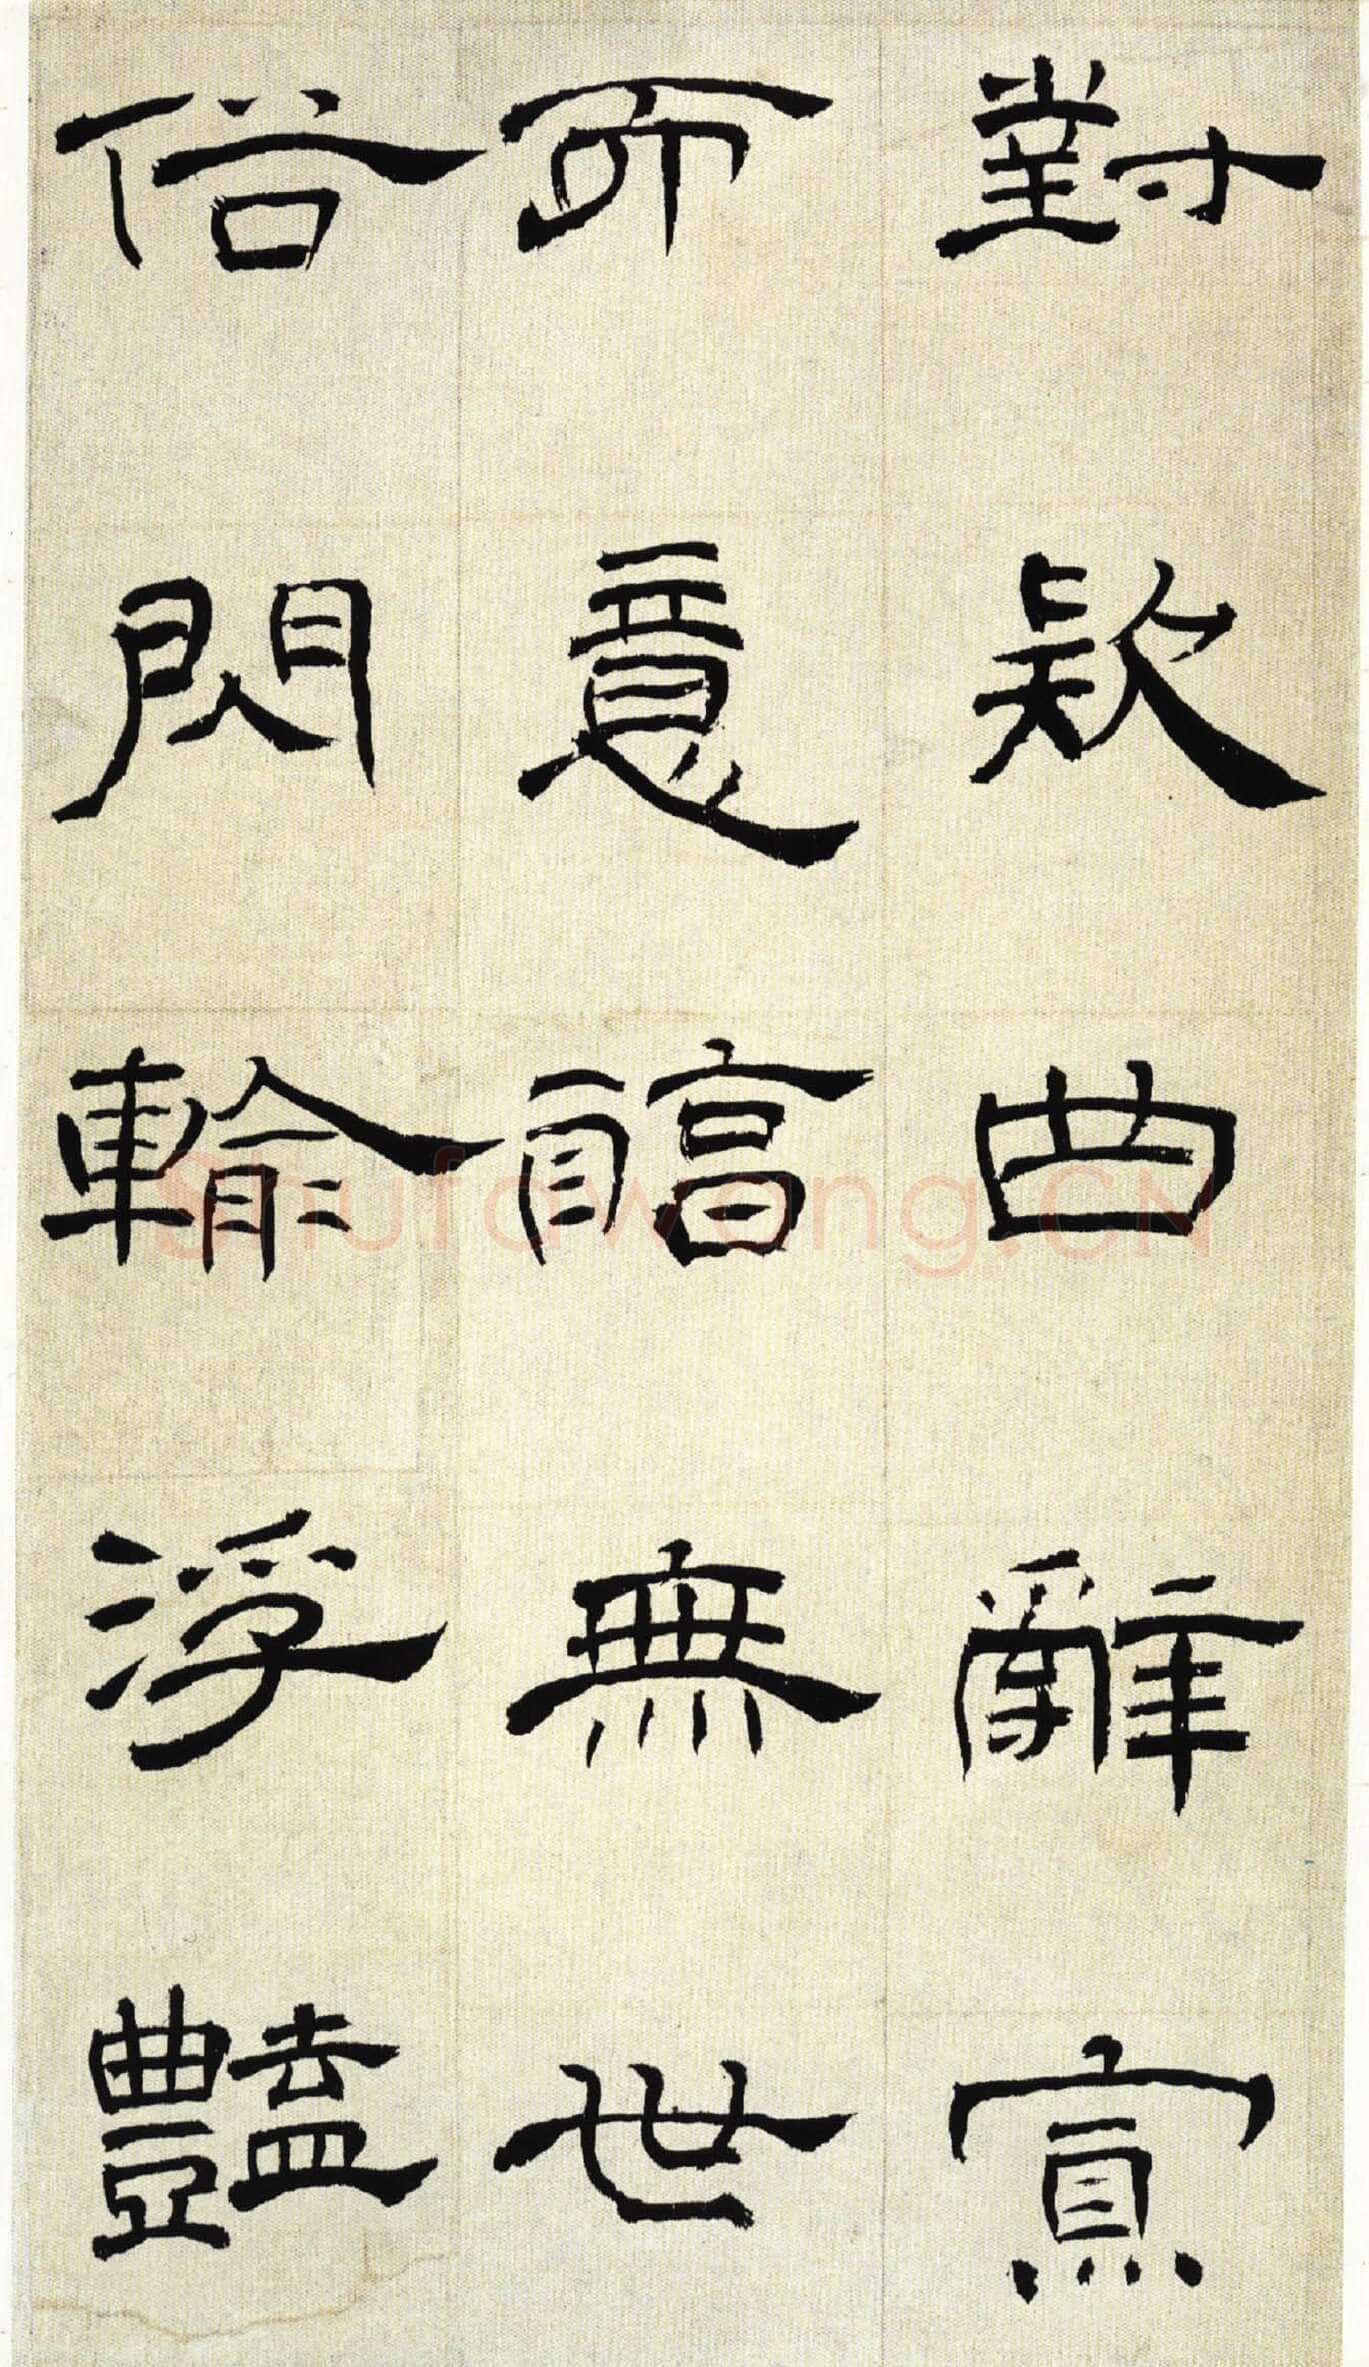 對欵曲辭寡
而意醇無世
俗閃輸浮豔
ShufaWang.CN